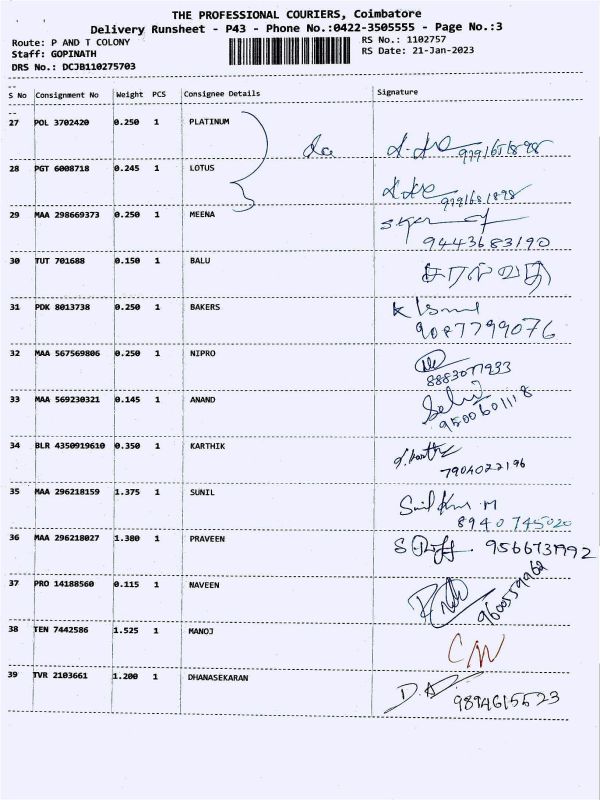 THE PROFESSIONAL COURIERS, Coimbatore
Delivery Runsheet - P43 - Phone No.:0422-3505555 - Page No.:3
Route: P AND T COLONY RS No.: 1102757
Staff: GOPINATH RS Date: 21-Jan-2023
DRS No.: DCJB110275703
S No Consignment No Weight PCS Consignee Details Signature
27 POL 3702420 0.250 1 PLATINUM
28 PGT 6008718 0.245 1 LOTUS
29 MAA 298669373 0.250 1 MEENA
9443683190
30 TUT 701688 0.150 1 BALU
31 PDK 8013738 0.250 1 BAKERS
9087799076
32 MAA 567569806 0.250 1 NIPRO
8883077933
33 MAA 569230321 0.145 1 ANAND
9500601118
34 BLR 4350919610 0.350 1 KARTHIK
7904022196
35 MAA 296218159 1.375 1 SUNIL
Sunil Kumar M
8940745020
36 MAA 296218027 1.380 1 PRAVEEN
9566731992
37 PRO 14188560 0.115 1 NAVEEN
38 TEN 7442586 1.525 1 MANOJ
39 TVR 2103661 1.200 1 DHANASEKARAN
9894615523